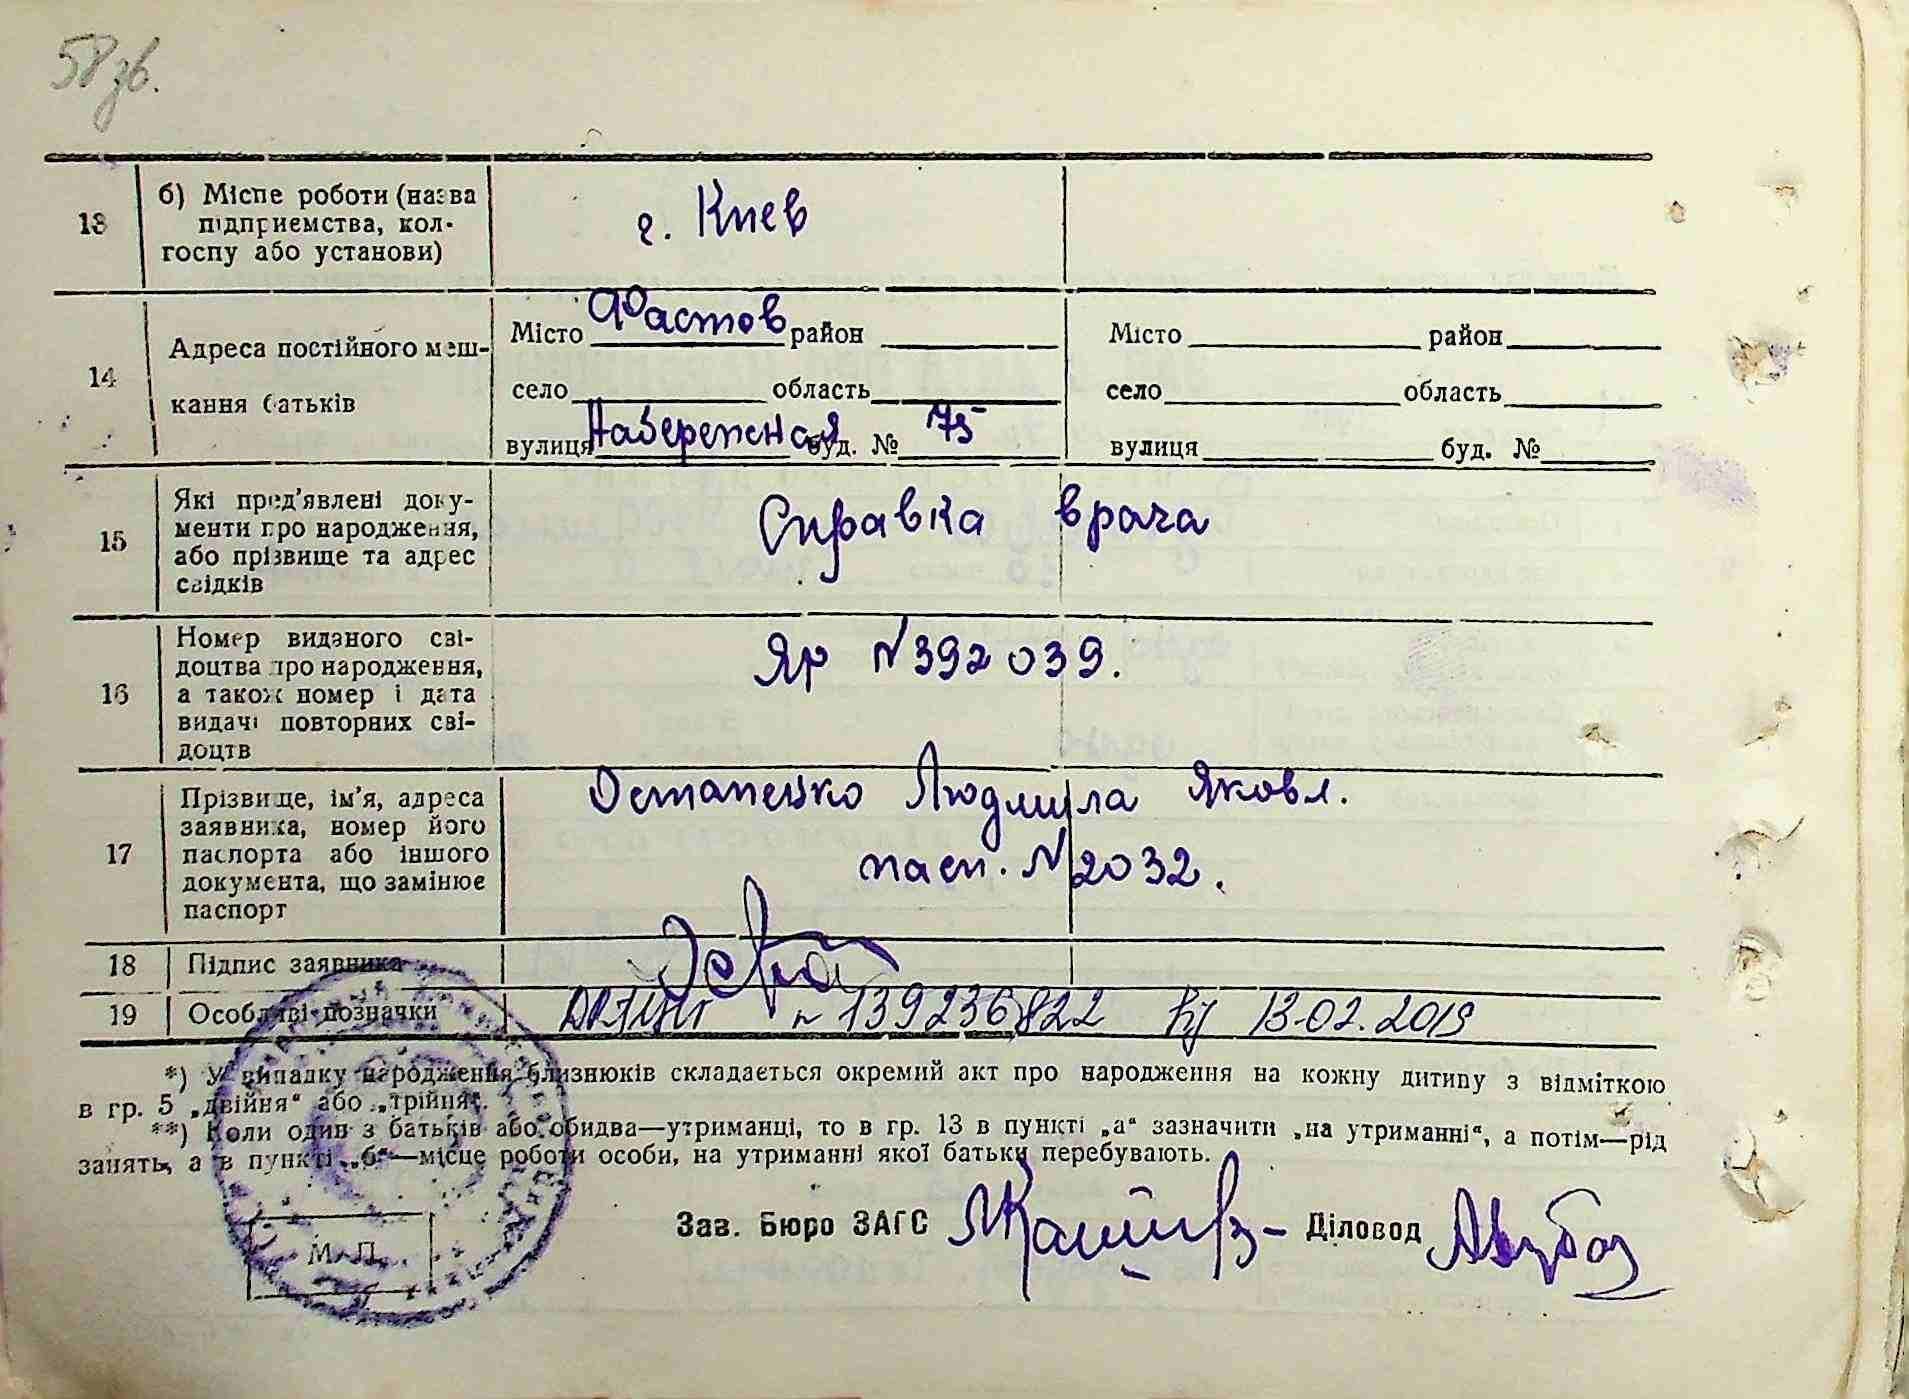 58 зв.
13
б) Місце роботи (назва
підприємства, кол-
госпу або установи)
г. Киев
14
Адреса постійного меш-
кання батьків
Місто Фастов район
село область
вулиця Набережная буд. № 75
Місто район
село область
вулиця буд. №
15
Які пред'явлені доку-
менти про народження,
або прізвище та адрес
свідків
Справка врача
16
Номер виданого сві-
доцтва про народження,
а також номер і дата
видачі повторних сві-
доцтв
Яр N 392039.
17
Прізвище, ім'я, адреса
заявника, номер його
паспорта або іншого
документа, що замінює
паспорт
Остапенко Людмила Яковл.
пасп. N 2032.
18
Підпис заявника
19
Особливі позначки
n 139236822 13.02.2019
*) У випадку народження близнюків складається окремий акт про народження на кожну дитину з відміткою
в гр. 5 „двійня“ або „трійня“.
**) Коли один з батьків або обидва—утриманці, то в гр. 13 в пункті „а“ зазначити „на утриманні“, а потім—рід
занять, а в пункті „б“—місце роботи особи, на утриманні якої батьки перебувають.
Зав. Бюро ЗАГС
Діловод
М. П.